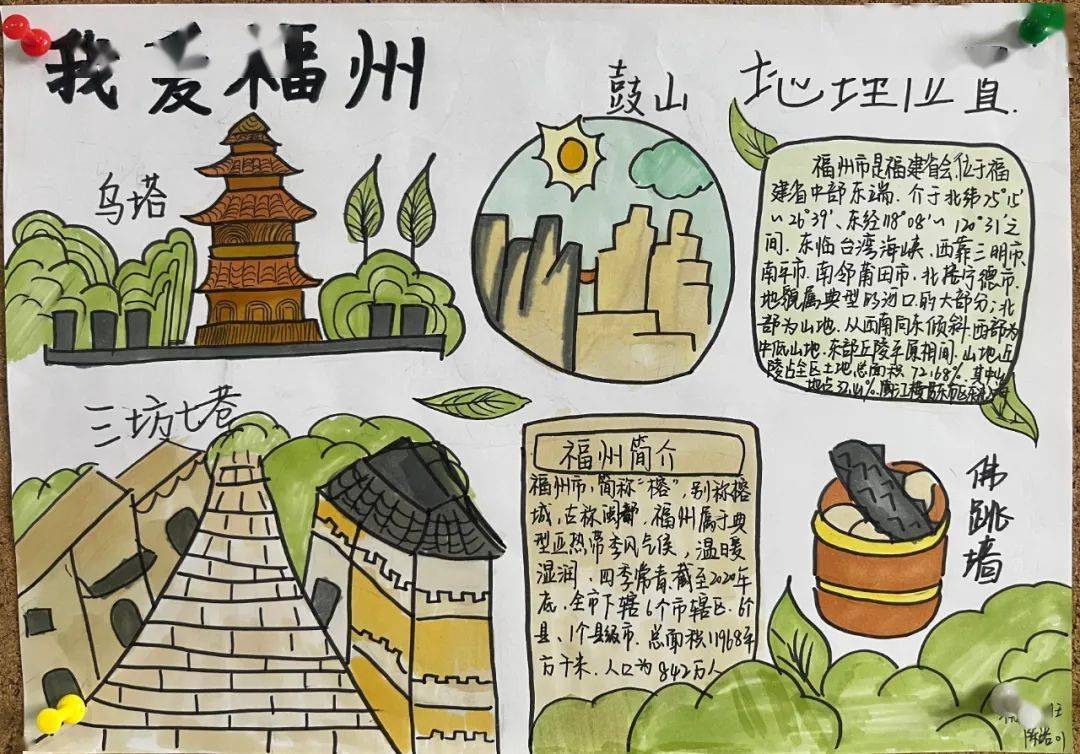 我爱福州
鼓山
地理位置.
乌塔
福州市是福建省会位于福
建省中部东端.介于北纬25°15′
~26°39′、东经118°08′~120°31′之
间.东临台湾海峡、西靠三明市、
南平市.南邻莆田市、北接宁德市.
地貌属典型的河口的大部分;北
部为山地.从西南向东倾斜.西部为
中低山地.东部丘陵平原相间.山地丘
陵占全区土地总面积72.68%.其中山
三坊七巷
福州简介
福州市,简称"榕",别称榕
城,古称闽都.福州属于典
型亚热带季风气候,温暖
湿润.四季常青.截至2020年
底.全市下辖6个市辖区.6个
县、1个县级市.总面积11968平
方千米.人口为842万人
佛跳墙